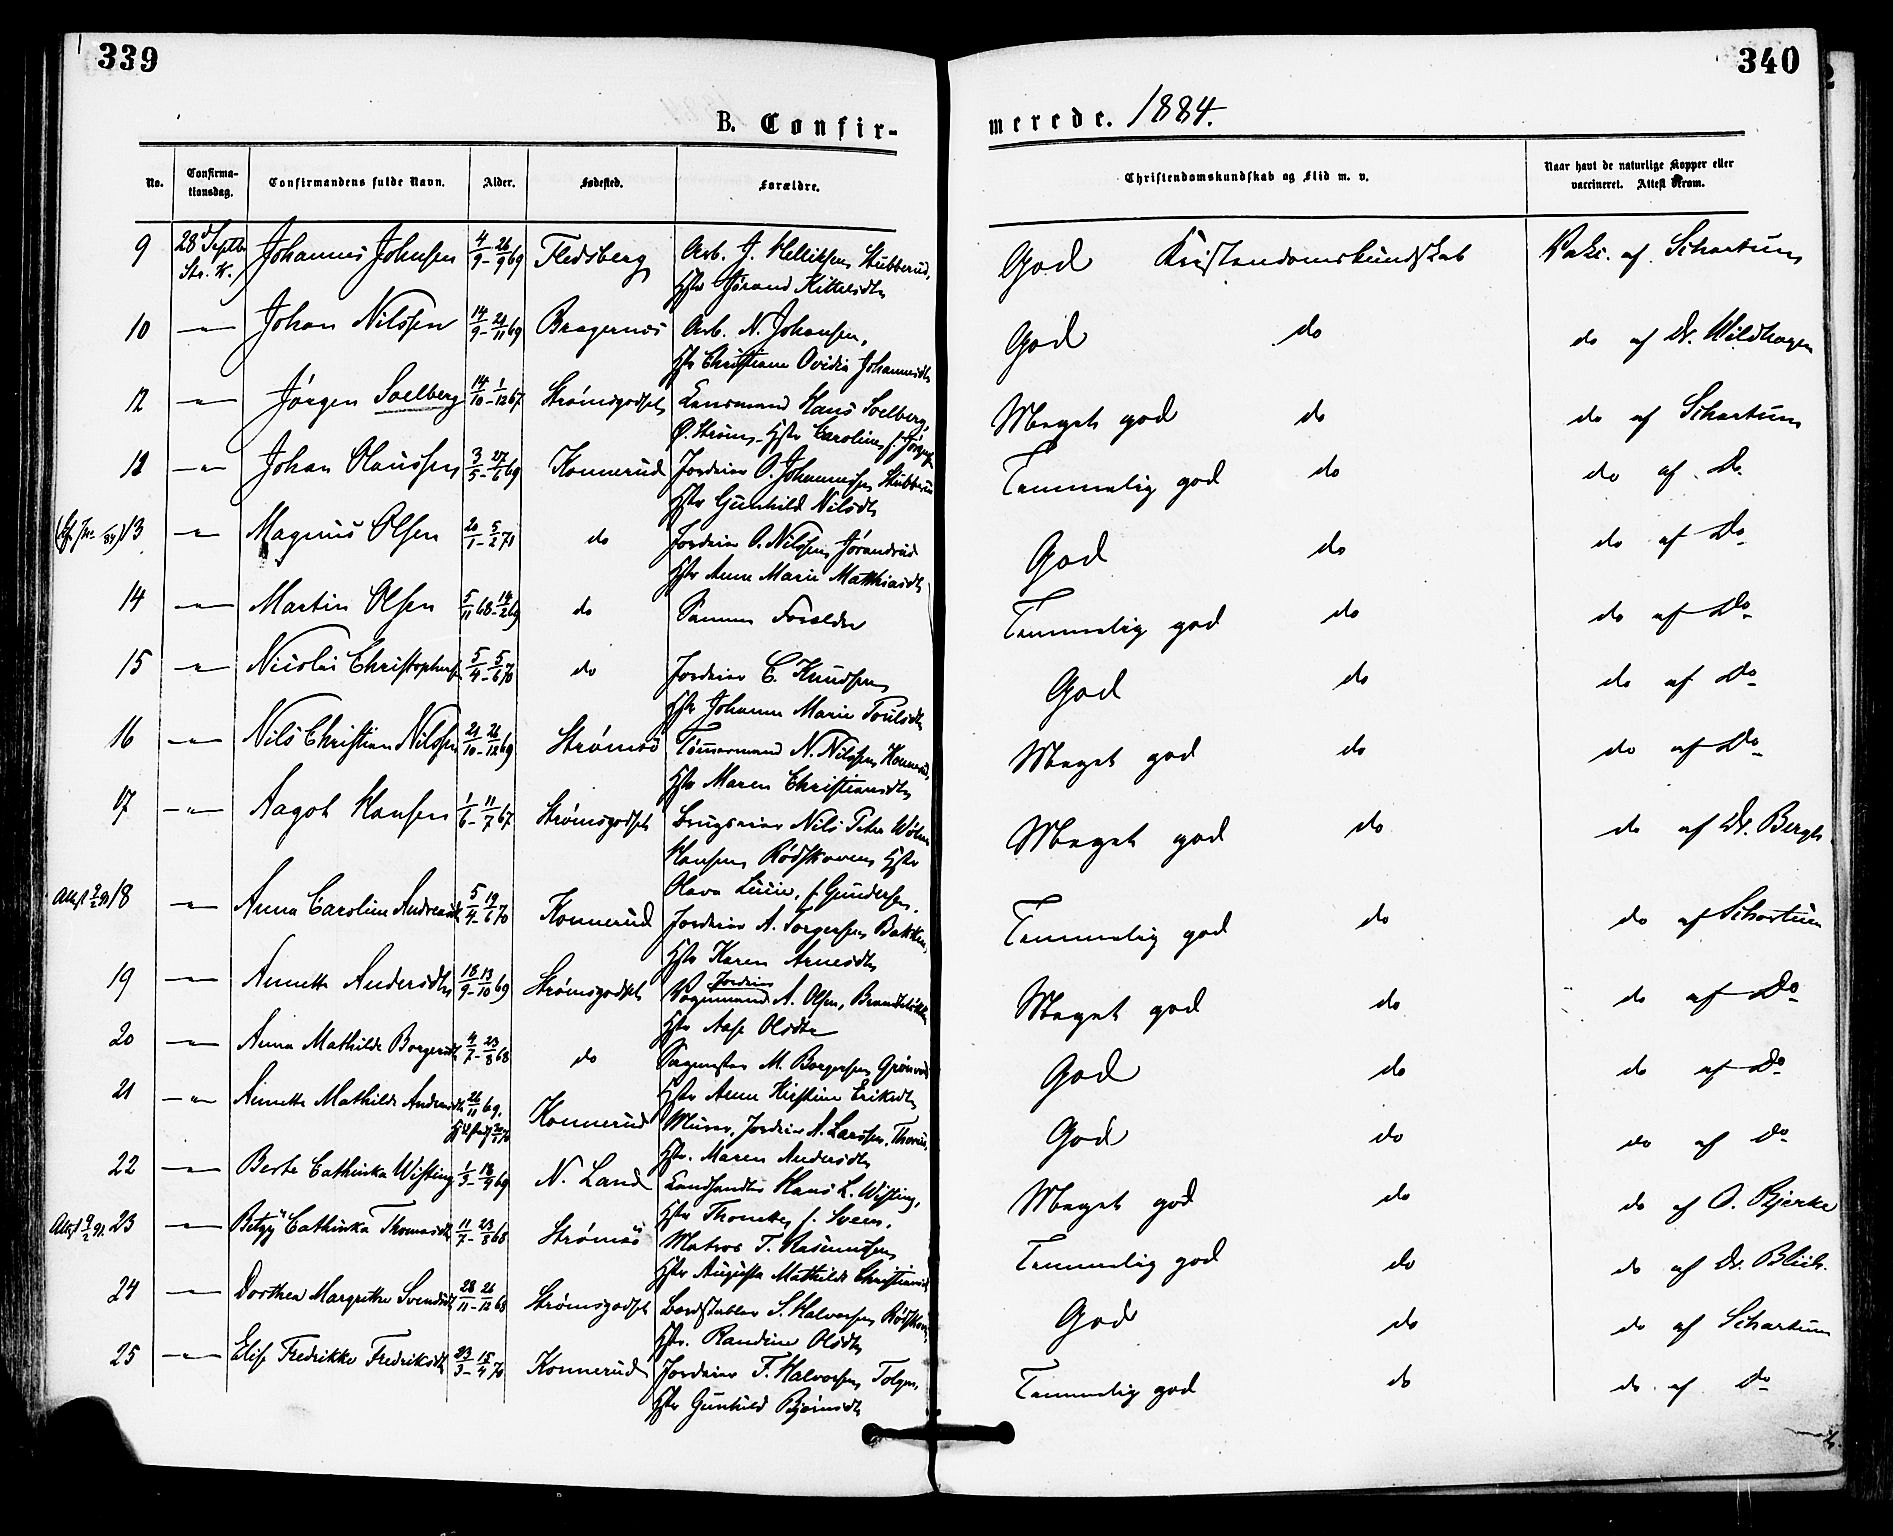 339
340
B. Confir-
merede. 1884.
No. Confirma-tionsdag. Confirmandens fulde Navn. Alder. Fødested. Forældre. Christendomskundskab og Flid m. v. Naar havt de naturlige Kopper eller vaccineret. Attest derom.
9 28d Septb Johannes Johnsen 4/9 - 26/9 69 Flesberg Arb. J. Helliksen Stubberud, God Kristendomskundskab Vakc. af Schartum
Str. K. Hstr Jørand Kittelsdtr
10 -"- Johan Nilssen 14/9 - 21/11 69 Bragernæs Arb. N. Johansen, God do do af Dr. Wildhagen
Hstr Christiane Ovidia Johannesdtr
12 -"- Jørgen Soelberg 14/10 - 1/12 67 Strømsgodset Lensmand Hans Soelberg, Meget god do do af Schartum
Ø. Strøm, Hstr Caroline f. Jørgensen
12 -"- Johan Olaussen 3/5 - 27/6 69 Konnerud Jordeier O. Johannessen Stubberud Temmelig god do do af Do
Hstr Gunhild Nilsdtr
13 -"- Magnus Olsen 20/1 - 5/2 71 do Jordeier O. Nilssen Jørandrud God do do af Do
Hstr Anne Marie Matthiasdtr
14 -"- Martin Olsen 5/11 68 - 14/2 69 do Samme Forældre Temmelig god do do af Do
15 -"- Nicolai Christophersen 5/4 - 5/6 70 do Jordeier C. Knudsen God do do af Do
Hstr Johanne Marie Poulsdtr
16 -"- Nils Christian Nilssen 21/10 - 26/12 69 Strømsø Tømmermand N. Nilssen Konnerud, Meget god do do af Do
Hstr Maren Christiansdtr
17 -"- Aagot Hansen 1/6 - 11/7 67 Strømsgodset Brugseier Nils Peter Meget god do do af Dr. Bergh
Hansen Rødskoven Hstr
Olava Lucie, f. Gundersen.
Attest 2/2 91 18 -"- Anna Caroline Andreasdtr 5/4 - 19/6 70 Konnerud Jordeier A. Torgersen Bakken, Temmelig god do do af Schartum
Hstr Karen Arnesdtr
19 -"- Annette Andersdtr 18/9 - 13/10 69 Strømsgodset Jordeier Vognmand A. Olsen, Meget god do do af Do
Hstr Aase Olsdtr
20 -"- Anna Mathilde Borgersdtr 4/7 - 23/8 68 do Sagmester M. Borgersen God do do af Do
Hstr Anne Kirstine Eriksdtr
21 -"- Annette Mathilde Andersdtr 26/11 69. Konnerud Murer, Jordeier A. Larssen, God do do af Do
Hstr. Maren Andersdtr
22 -"- Berte Cathinka Wisting 1/3 - 18/4 69 N. Land Landhandler Hans L. Wisting, Meget god do do af O. Bjerke
Hstr Thomine f. Sveen.
Attest 9/2 91. 23 -"- Betzy Cathinka Thomasdtr 11/7 - 23/8 68 Strømsø Matros T. Rasmussen Temmelig god do do af Dr. Blich.
Hstr Augusta Mathilde Christiansdtr
24 -"- Dorthea Margrethe Svendsdtr 28/11 - 26/12 68 Strømsgodset Bordstabler S. Halvorsen Rødskov, God do do af Schartum
Hstr. Randine Olsdtr
25 -"- Elise Fredrikke Fredriksdtr 23/3 - 15/4 70 Konnerud Jordeier F. Halvorsen Temmelig god do do af Do
Hstr Gunhild Bjørnsdtr